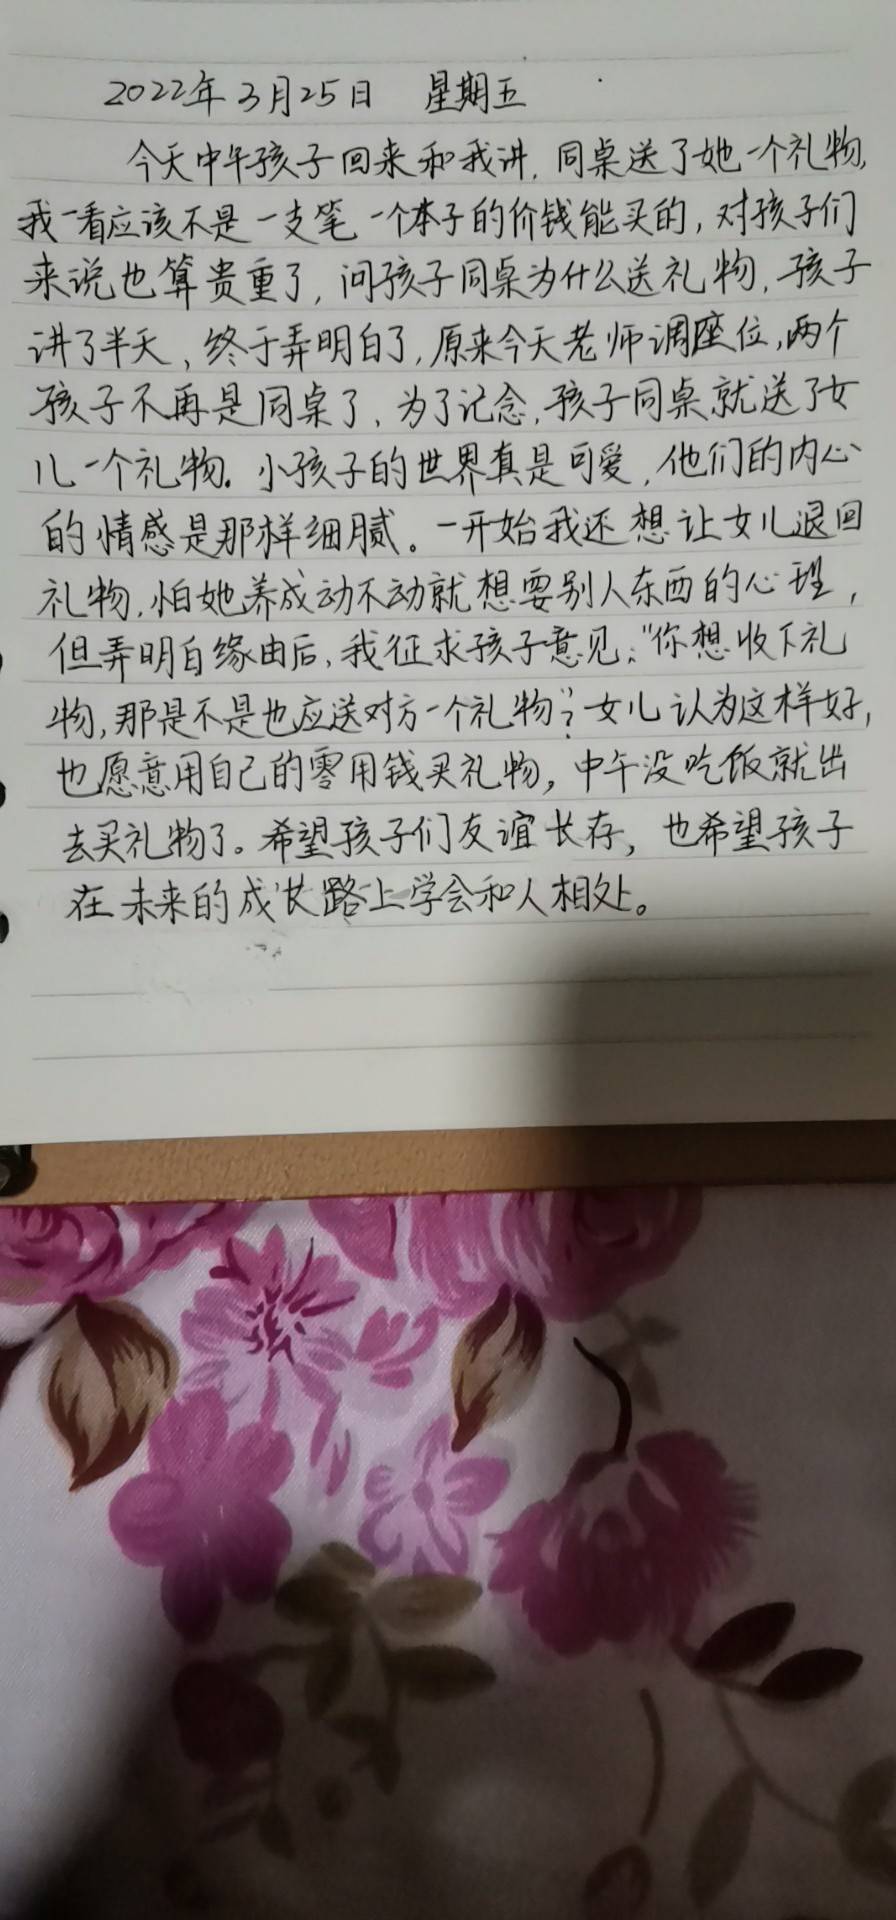 2022年3月25日 星期五
今天中午孩子回来和我讲,同桌送了她一个礼物,
我一看应该不是一支笔一个本子的价钱能买的,对孩子们
来说也算贵重了,问孩子同桌为什么送礼物,孩子
讲了半天,终于弄明白了,原来今天老师调座位,两个
孩子不再是同桌了,为了记念,孩子同桌就送了女
儿一个礼物。小孩子的世界真是可爱,他们的内心
的情感是那样细腻。一开始我还想让女儿退回
礼物,怕她养成动不动就想要别人东西的心理,
但弄明白缘由后,我征求孩子意见:“你想收下礼
物,那是不是也应送对方一个礼物”?女儿认为这样好,
也愿意用自己的零用钱买礼物,中午没吃饭就出
去买礼物了。希望孩子们友谊长存,也希望孩子
在未来的成长路上学会和人相处。